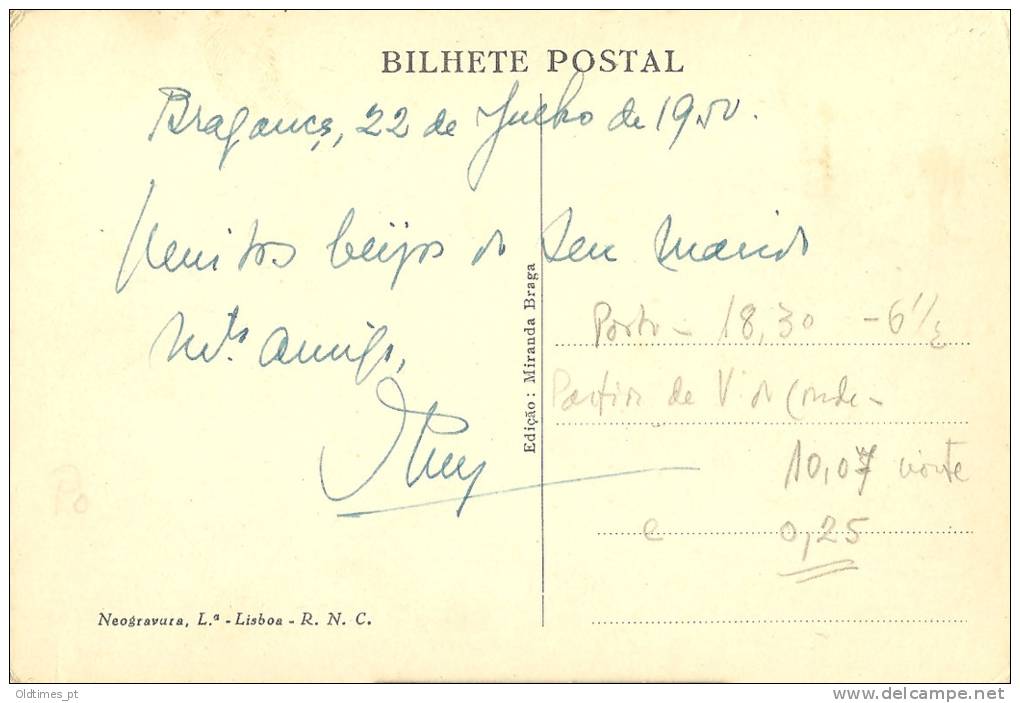 BILHETE POSTAL
Bragança, 22 de Julho de 1950.
Muitos beijos do seu marido
mto amigo,
Ruy
Edição: Miranda Braga
Porto - 18,30 - 6 1/2
Partida de V. do Conde -
10,07 noite
e 0,25
Po
Neogravura, L.ª - Lisboa - R. N. C.
Oldtimes_pt
http://www.delcampe.net